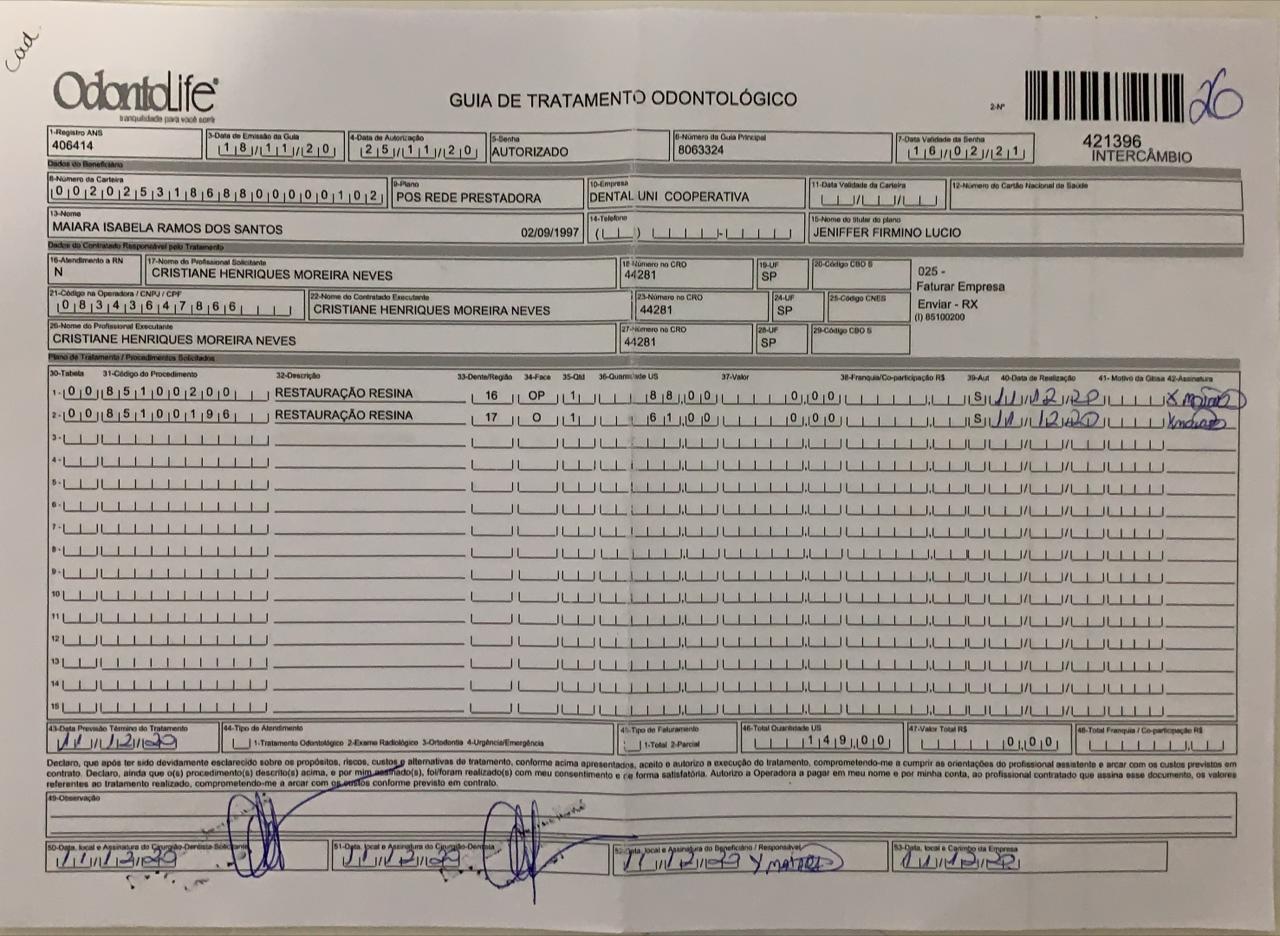 cad
OdontoLife
tranquilidade para você sorrir
GUIA DE TRATAMENTO ODONTOLÓGICO
2-Nº
26
421396
INTERCÂMBIO
1-Registro ANS
406414
3-Data de Emissão da Guia
18/11/20
4-Data de Autorização
25/11/20
5-Senha
AUTORIZADO
6-Número da Guia Principal
8063324
7-Data Validade da Senha
16/02/21
Dados do Beneficiário
8-Número da Carteira
00202531868800000102
9-Plano
POS REDE PRESTADORA
10-Empresa
DENTAL UNI COOPERATIVA
11-Data Validade da Carteira
12-Número do Cartão Nacional de Saúde
13-Nome
MAIARA ISABELA RAMOS DOS SANTOS 02/09/1997
14-Telefone
15-Nome do titular do plano
JENIFFER FIRMINO LUCIO
Dados do Contratado Responsável pelo Tratamento
16-Atendimento a RN
N
17-Nome do Profissional Solicitante
CRISTIANE HENRIQUES MOREIRA NEVES
18-Número no CRO
44281
19-UF
SP
20-Código CBO S
025 -
Faturar Empresa
Enviar - RX
(I) 85100200
21-Código na Operadora / CNPJ / CPF
08343647866
22-Nome do Contratado Executante
CRISTIANE HENRIQUES MOREIRA NEVES
23-Número no CRO
44281
24-UF
SP
25-Código CNES
26-Nome do Profissional Executante
CRISTIANE HENRIQUES MOREIRA NEVES
27-Número no CRO
44281
28-UF
SP
29-Código CBO S
Plano de Tratamento / Procedimentos Solicitados
30-Tabela 31-Código do Procedimento 32-Descrição 33-Dente/Região 34-Face 35-Qtd 36-Quantidade US 37-Valor 38-Franquia/Co-participação R$ 39-Aut 40-Data de Realização 41-Motivo da Glosa 42-Assinatura
1- 00 85100200 RESTAURAÇÃO RESINA 16 OP 1 88,00 0,00 S 11/12/20
2- 00 85100196 RESTAURAÇÃO RESINA 17 O 1 61,00 0,00 S 11/12/20
3-
4-
5-
6-
7-
8-
9-
10
11
12
13
14
15
43-Data Previsão Término do Tratamento
11/12/20
44-Tipo de Atendimento
1-Tratamento Odontológico 2-Exame Radiológico 3-Ortodontia 4-Urgência/Emergência
45-Tipo de Faturamento
1-Total 2-Parcial
46-Total Quantidade US
149,00
47-Valor Total R$
0,00
48-Total Franquia / Co-participação R$
Declaro, que após ter sido devidamente esclarecido sobre os propósitos, riscos, custos e alternativas de tratamento, conforme acima apresentados, aceito e autorizo a execução do tratamento, comprometendo-me a cumprir as orientações do profissional assistente e arcar com os custos previstos em
contrato. Declaro, ainda que o(s) procedimento(s) descrito(s) acima, e por mim assinado(s), foi/foram realizado(s) com meu consentimento e de forma satisfatória. Autorizo a Operadora a pagar em meu nome e por minha conta, ao profissional contratado que assina esse documento, os valores
referentes ao tratamento realizado, comprometendo-me a arcar com os custos conforme previsto em contrato.
49-Observação
50-Data, local e Assinatura do Cirurgião-Dentista Solicitante
11/12/20
51-Data, local e Assinatura do Cirurgião-Dentista
11/12/20
52-Data, local e Assinatura do Beneficiário / Responsável
11/12/20
53-Data, local e Carimbo da Empresa
11/12/20